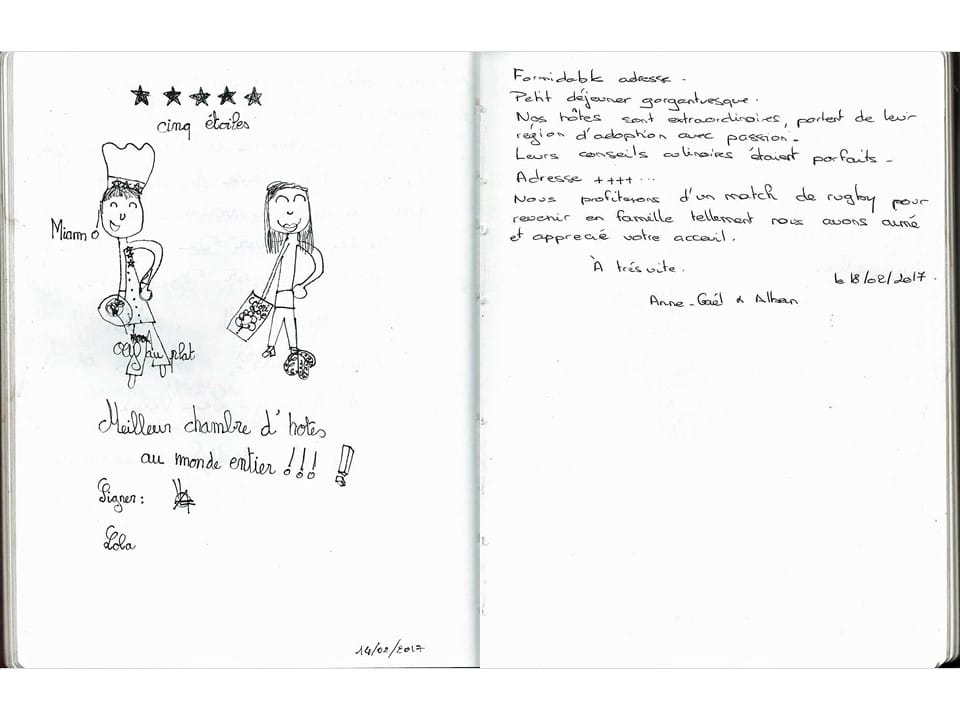 cinq étoiles
Miamm
au plat
Meilleur chambre d'hotes
au monde entier !!! !
Signer :
Lola
14/02/2017
Formidable adresse.
Petit déjeuner gargantuesque.
Nos hôtes sont extraordinaires, parlent de leur
région d'adoption avec passion.
Leurs conseils culinaires étaient parfaits.
Adresse ++++...
Nous profiterons d'un match de rugby pour
revenir en famille tellement nous avons aimé
et apprecié votre acceuil.
À très vite.
le 18/02/2017.
Anne-Gaël & Alban